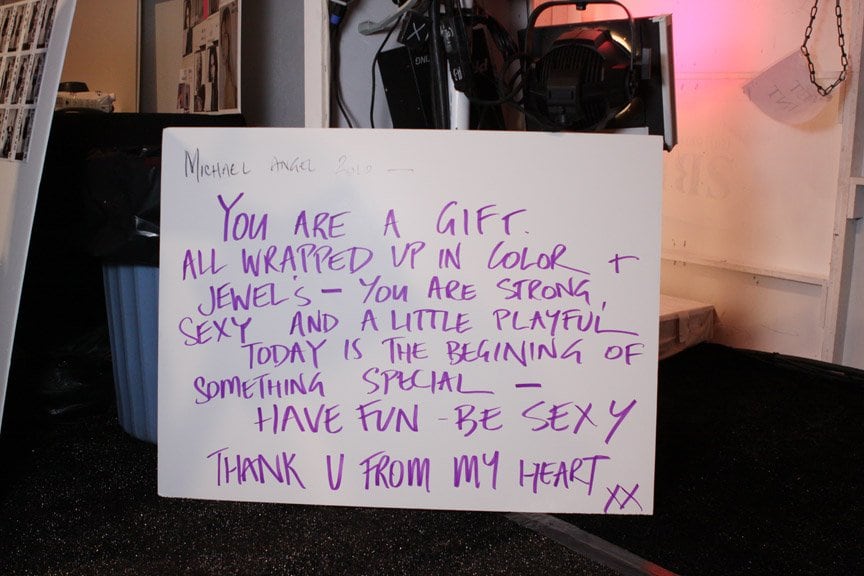 MICHAEL ANGEL 2010 —
YOU ARE A GIFT.
ALL WRAPPED UP IN COLOR +
JEWEL'S — YOU ARE STRONG,
SEXY AND A LITTLE PLAYFUL
TODAY IS THE BEGINING OF
SOMETHING SPECIAL —
HAVE FUN - BE SEXY
THANK U FROM MY HEART
XX